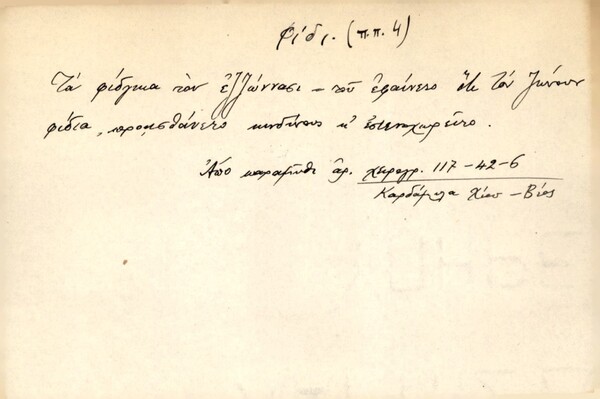 Φίδι. (π.π. 4)
Τά φίδγκια τὸν ἐζζώννασι - τοῦ ἐφαίνετο ὅτι τὸν ζώνουν
φίδια, προαισθάνετο κινδύνους κ' ἐστενοχωρεῖτο.
Ἀπό παραμῦθι ἀρ. χειρογρ. 117-42-6
Καρδάμυλα Χίου - Βίος